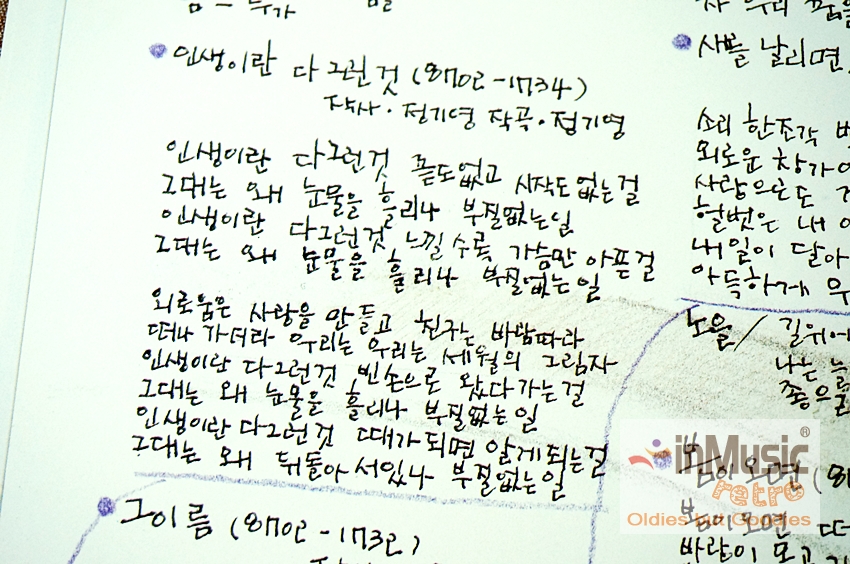 인생이란 다 그런 것 (8702-1734)
작사·정기영 작곡·정기영
인생이란 다그런것 끝도없고 시작도없는걸
그대는 왜 눈물을 흘리나 부질없는일
인생이란 다그런것 느낄수록 가슴만 아픈걸
그대는 왜 눈물을 흘리나 부질없는일
외로움은 사랑을 만들고 친구는 바람따라
떠나가더라 우리는 우리는 세월의 그림자
인생이란 다그런것 빈손으로 왔다가는걸
그대는 왜 눈물을 흘리나 부질없는일
인생이란 다그런것 때가되면 알게되는걸
그대는 왜 뒤돌아 서있나 부질없는일
그이름 (8702-1732)
날리면
소리 한조각
외로운 창가에
사랑으로도
헐벗은 내
내일이 달아
아득하게
노을/ 길위에
나는
봄이오면
봄이오면
바람이
inMusic®
retro
Oldies but Goodies